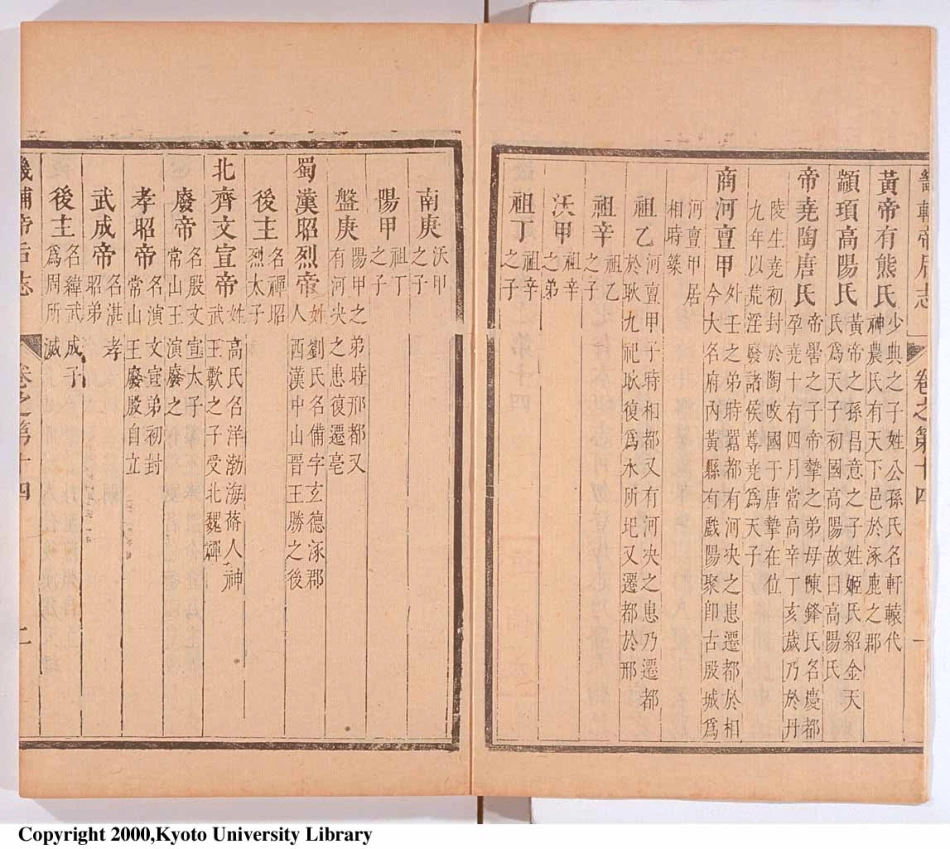 畿輔帝后志
卷之第十四
一
黃帝有熊氏少典之子姓公孫氏名軒轅代
神農氏有天下邑於涿鹿之郡
顓頊高陽氏黃帝之孫昌意之子姓姬氏紹金天
氏為天子初國高陽故曰高陽氏
帝堯陶唐氏帝嚳之子帝摯之弟母陳鋒氏名慶都
孕堯十有四月當高辛丁亥歲乃於丹
陵生堯初封於陶攺國于唐摯在位
九年以荒淫廢諸侯尊堯為天子
商河亶甲外壬之弟時囂都有河决之患遷都於相
今大名府內黃縣有戲陽聚卽古殷城為
河亶甲居
相時築
祖乙河亶甲子時相都又有河决之患乃遷都
於耿九祀耿復為水所圮又遷都於邢
祖辛祖乙
之子
沃甲祖辛
之弟
祖丁祖辛
之子
南庚沃甲
之子
陽甲祖丁
之子
盤庚陽甲之弟時邢都又
有河决之患復遷亳
蜀漢昭烈帝姓劉氏名備字玄德涿郡
人西漢中山晋王勝之後
後主名禪昭
烈太子
北齊文宣帝姓高氏名洋渤海蓨人神
武王歡之子受北魏禪
廢帝名殷文宣太子
常山王演廢之
孝昭帝名演文宣弟初封
常山王廢殷自立
武成帝名湛孝
昭弟
後主名緯武成子
為周所滅
畿輔帝后志
卷之第十四
二
Copyright 2000,Kyoto University Library